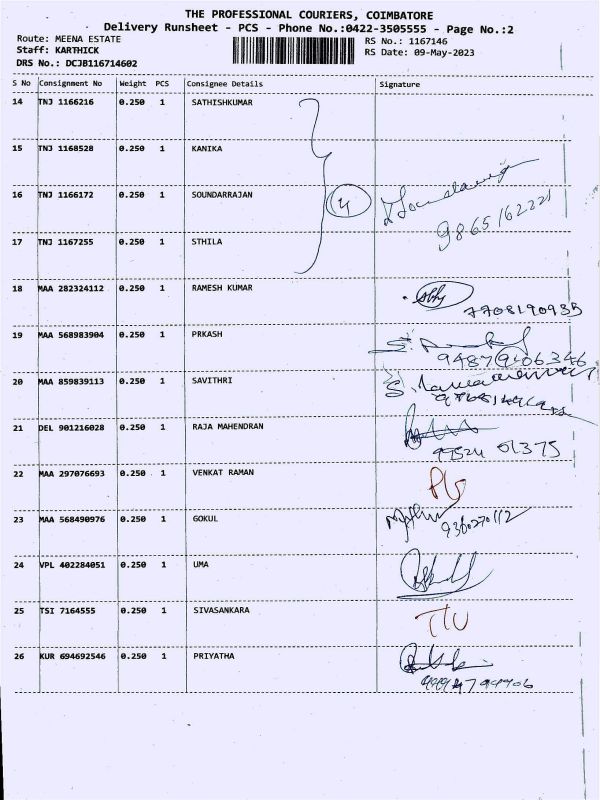 THE PROFESSIONAL COURIERS, COIMBATORE
Delivery Runsheet - PCS - Phone No.:0422-3505555 - Page No.:2
Route: MEENA ESTATE
RS No.: 1167146
Staff: KARTHICK
RS Date: 09-May-2023
DRS No.: DCJB116714602
S No Consignment No Weight PCS Consignee Details Signature
14 TNJ 1166216 0.250 1 SATHISHKUMAR
15 TNJ 1168528 0.250 1 KANIKA
16 TNJ 1166172 0.250 1 SOUNDARRAJAN 4
9865162221
17 TNJ 1167255 0.250 1 STHILA
18 MAA 282324112 0.250 1 RAMESH KUMAR
7708190935
19 MAA 568983904 0.250 1 PRKASH
9487906346
20 MAA 859839113 0.250 1 SAVITHRI
21 DEL 901216028 0.250 1 RAJA MAHENDRAN
99524 01375
22 MAA 297076693 0.250 1 VENKAT RAMAN
23 MAA 568490976 0.250 1 GOKUL
24 VPL 402284051 0.250 1 UMA
25 TSI 7164555 0.250 1 SIVASANKARA
26 KUR 694692546 0.250 1 PRIYATHA